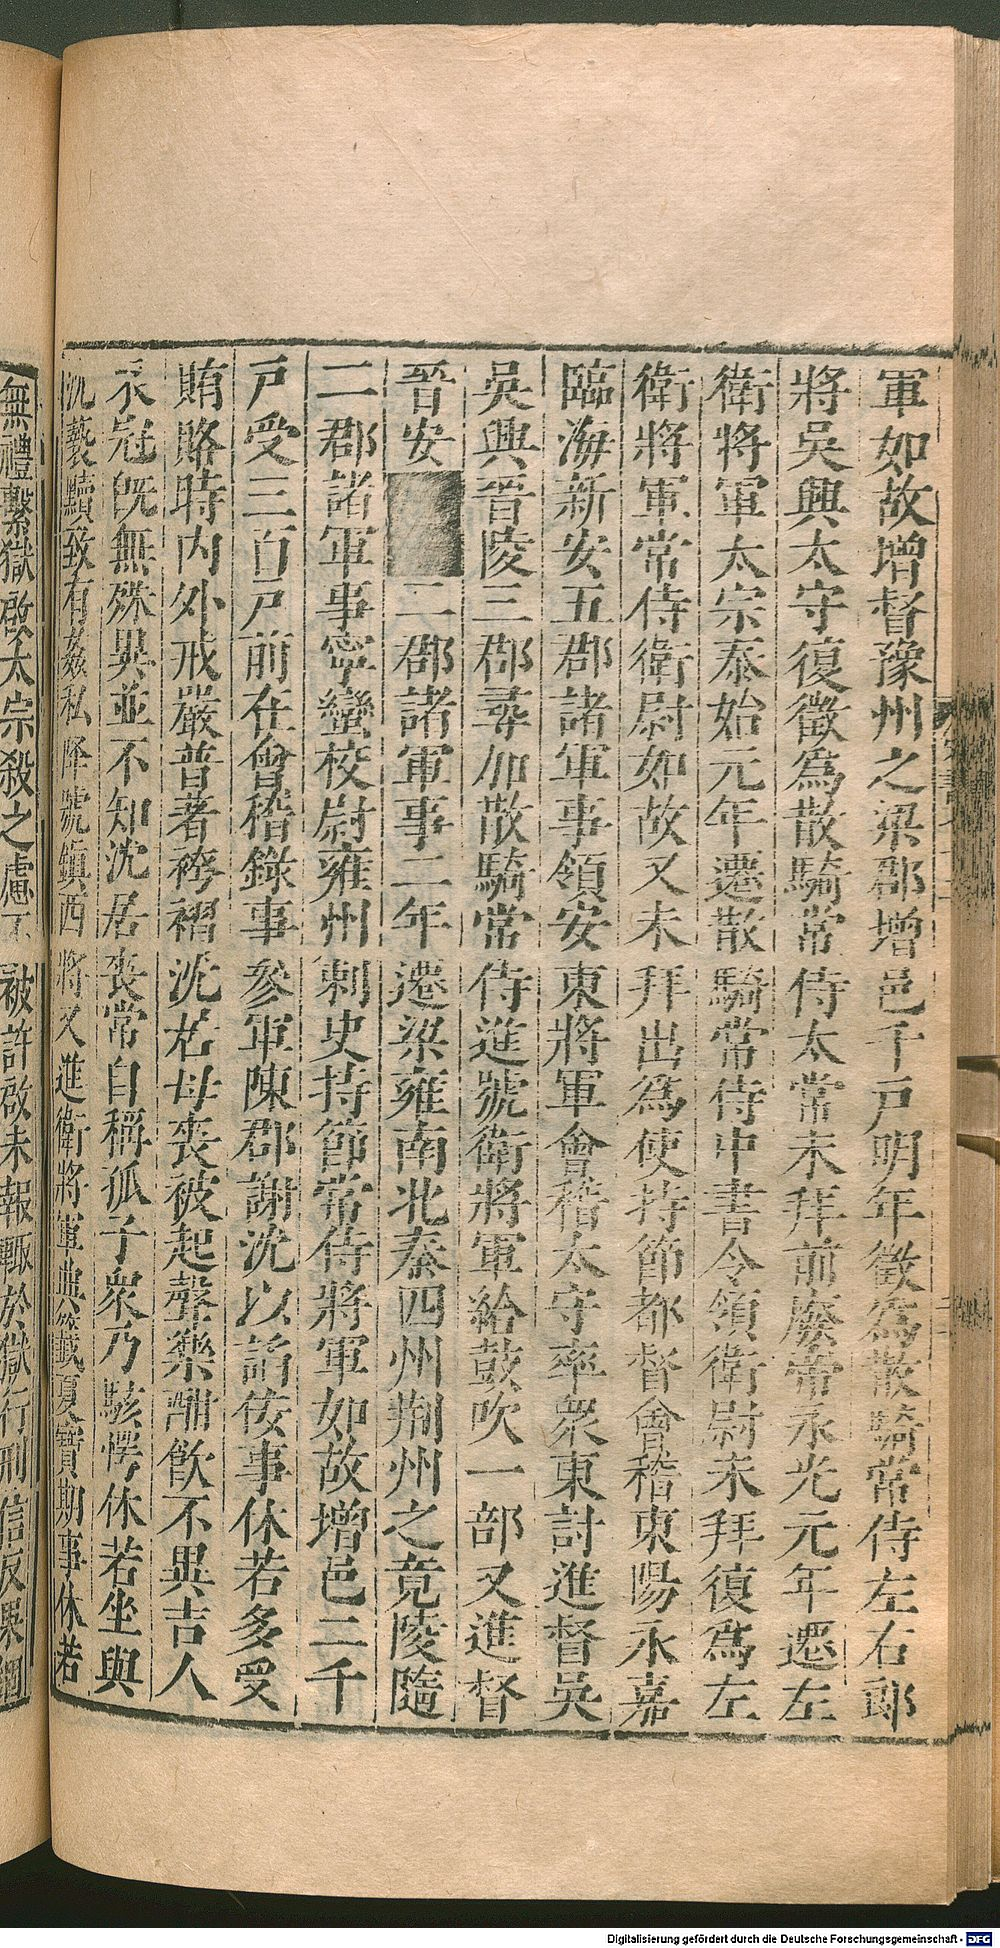 軍如故增督豫州之梁郡增邑千戸明年徵爲散騎常侍左右郎
將吳興太守復徵爲散騎常侍太常未拜前廢帝永光元年遷左
衛將軍太宗泰始元年遷散騎常侍中書令領衛尉未拜復爲左
衛將軍常侍衛尉如故又未拜出爲使持節都督會稽東陽永嘉
臨海新安五郡諸軍事領安東將軍會稽太守率衆東討進督吳
吳興晉陵三郡尋加散騎常侍進號衛將軍給鼓吹一部又進督
晉安二郡諸軍事二年遷梁雍南北秦四州荆州之竟陵隨
二郡諸軍事寧蠻校尉雍州刺史持節常侍將軍如故增邑二千
戸受三百戸前在會稽錄事參軍陳郡謝沈以諂佞事休若多受
賄賂時内外戒嚴普著袴褶沈居母喪被起聲樂酣飲不異吉人
衣冠旣無殊異並不知沈居喪常自稱孤子衆乃駭愕休若坐與
沈褻黷致有姦私降號鎭西將又進衛將軍典籖夏寶期事休若
無禮繫獄啟太宗殺之慮不被許啟未報輒於獄行刑信反果
宋書
Digitalisierung gefördert durch die Deutsche Forschungsgemeinschaft - DFG